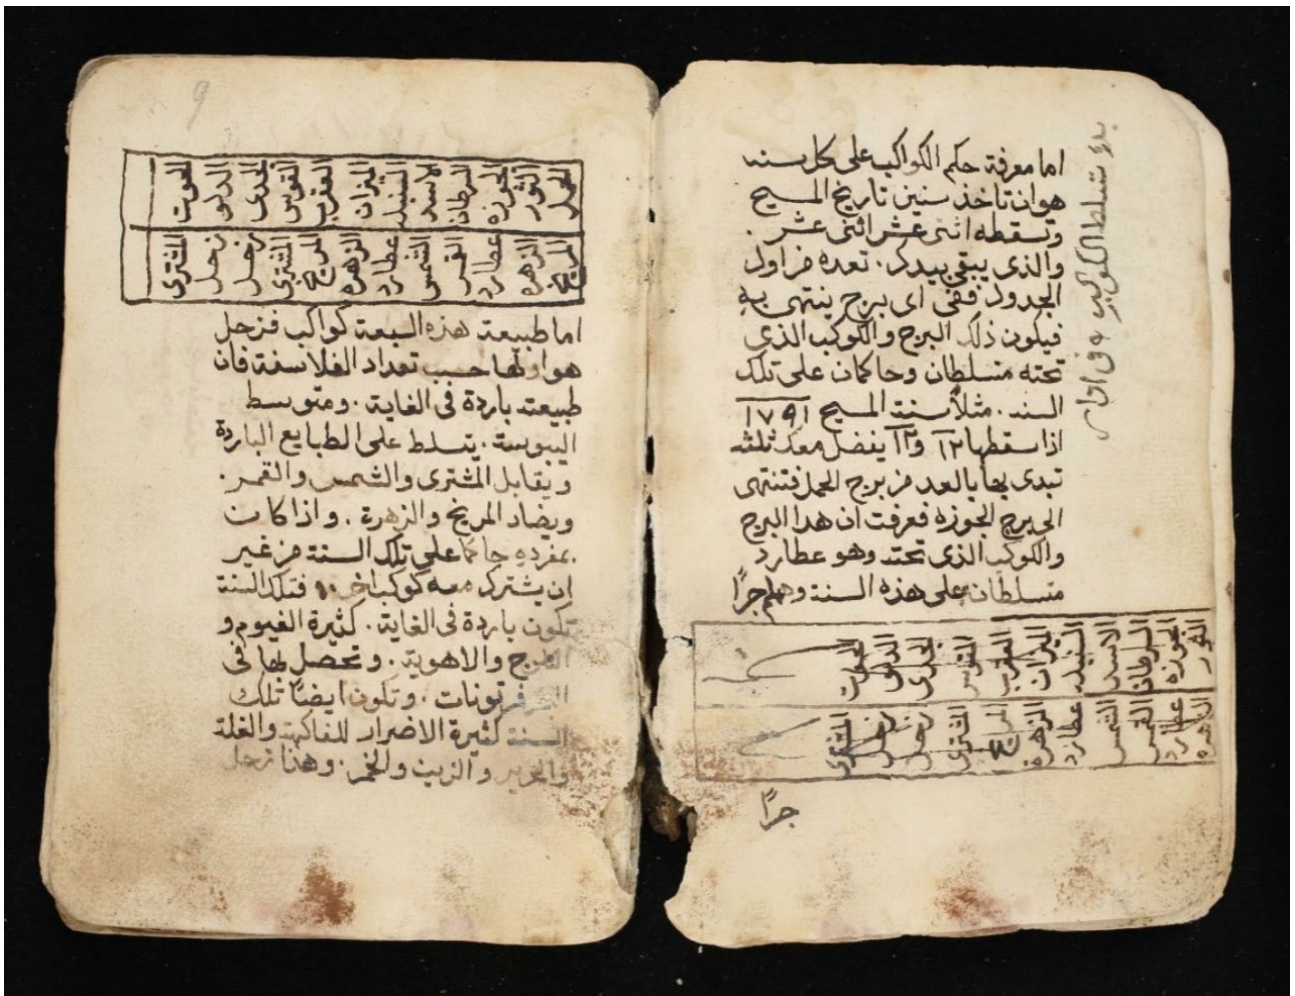 اما معرفة حكم الكواكب على كل سنه
هو ان تاخذ سنين تاريخ المسيح
وتسقطه اثنى عشر اثنى عشر .
والذى يبقى بيدك . تعده من اول
الجدول ففى اى برج ينتهى به
فيكون ذلك البرج والكوكب الذى
تحته متسلطان وحاكمان على تلك
السنه . مثلاً سنة المسيح ١٧٩١
اذا سقطها ١٢ و١٢ يفضل معك ثلثه
تبدى بها بالعد من برج الحمل فتنتهى
الى برج الجوزه فعرفت ان هدا البرج
والكوكب الذى تحته وهو عطارد
متسلطان على هذه السنة وهلم جرًا
الثور الجوزه السرطان الاسد السنبله الميزان العقرب القوس الجدى الدالو الحوت
الزهره عطارد القمر الشمس عطارد الزهره المريخ المشترى زحل زحل المشترى
جرًا
9
الحمل الثور الجوزه السرطان الاسد السنبله الميزان العقرب القوس الجدى الدالو الحوت
المريخ الزهره عطارد القمر الشمس عطارد الزهره المريخ المشترى زحل زحل المشترى
اما طبيعة هذه السبعة كواكب فزحل
هو اولها حسب تعداد الفلاسفة فان
طبيعته باردة فى الغاية . ومتوسط
اليبوسة . يتسلط على الطبايع الباردة
ويقابل المشترى والشمس والقمر .
ويضاد المريخ والزهرة . واذا كان
بمفرده حاكمًا على تلك السنة من غير
ان يشترك معه كوكب اخر فتلك السنة
تكون باردة فى الغاية . كثيرة الغيوم و
والاهوية . وتحصل بها فى
البحر فرتونات . وتكون ايضًا تلك
السنة كثيرة الاضرار للفاكهة والغلة
والحرير والزيت والخمر . وهذا زحل